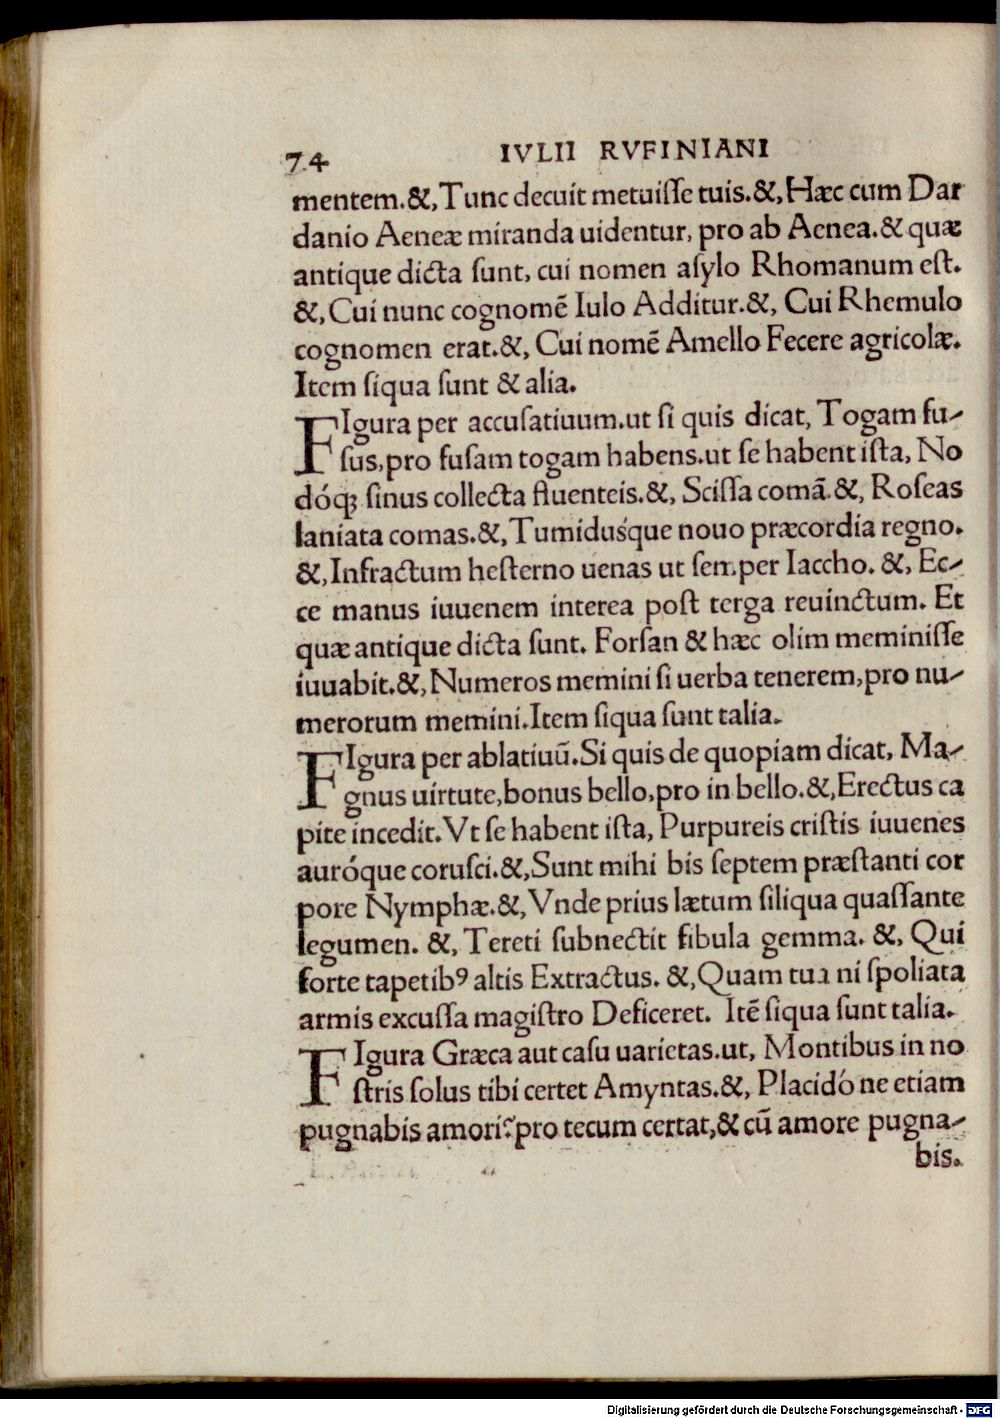 74 IVLII RVFINIANI
mentem.&, Tunc decuit metuiſſe tuis.&, Hæc cum Dar
danio Aeneæ miranda uidentur, pro ab Aenea.& quæ
antique dicta ſunt, cui nomen aſylo Rhomanum eſt.
&, Cui nunc cognomẽ Iulo Additur.&, Cui Rhemulo
cognomen erat.&, Cui nomẽ Amello Fecere agricolæ.
Item ſiqua ſunt & alia.
FIgura per accuſatiuum.ut ſi quis dicat, Togam fu-
ſus,pro fuſam togam habens.ut ſe habent iſta, No
dóqꝫ ſinus collecta fluenteis.&, Sciſſa comã.&, Roſeas
laniata comas.&, Tumidúsque nouo præcordia regno.
&, Infractum heſterno uenas ut ſemper Iaccho. &, Ec-
ce manus iuuenem interea poſt terga reuinctum. Et
quæ antique dicta ſunt. Forſan & hæc olim meminiſſe
iuuabit.&, Numeros memini ſi uerba tenerem,pro nu-
merorum memini.Item ſiqua ſunt talia.
FIgura per ablatiuũ.Si quis de quopiam dicat, Ma-
gnus uirtute,bonus bello,pro in bello.&, Erectus ca
pite incedit. Vt ſe habent iſta, Purpureis criſtis iuuenes
auróque coruſci.&, Sunt mihi bis ſeptem præſtanti cor
pore Nymphæ.&, Vnde prius lætum ſiliqua quaſſante
legumen. &, Tereti ſubnectit fibula gemma. &, Qui
forte tapetibꝰ altis Extractus. &, Quam tua ni ſpoliata
armis excuſſa magiſtro Deficeret. Itẽ ſiqua ſunt talia.
FIgura Græca aut caſu uarietas.ut, Montibus in no
ſtris ſolus tibi certet Amyntas.&, Placidó ne etiam
pugnabis amori? pro tecum certat,& cũ amore pugna-
bis.
Digitalisierung gefördert durch die Deutsche Forschungsgemeinschaft - DFG